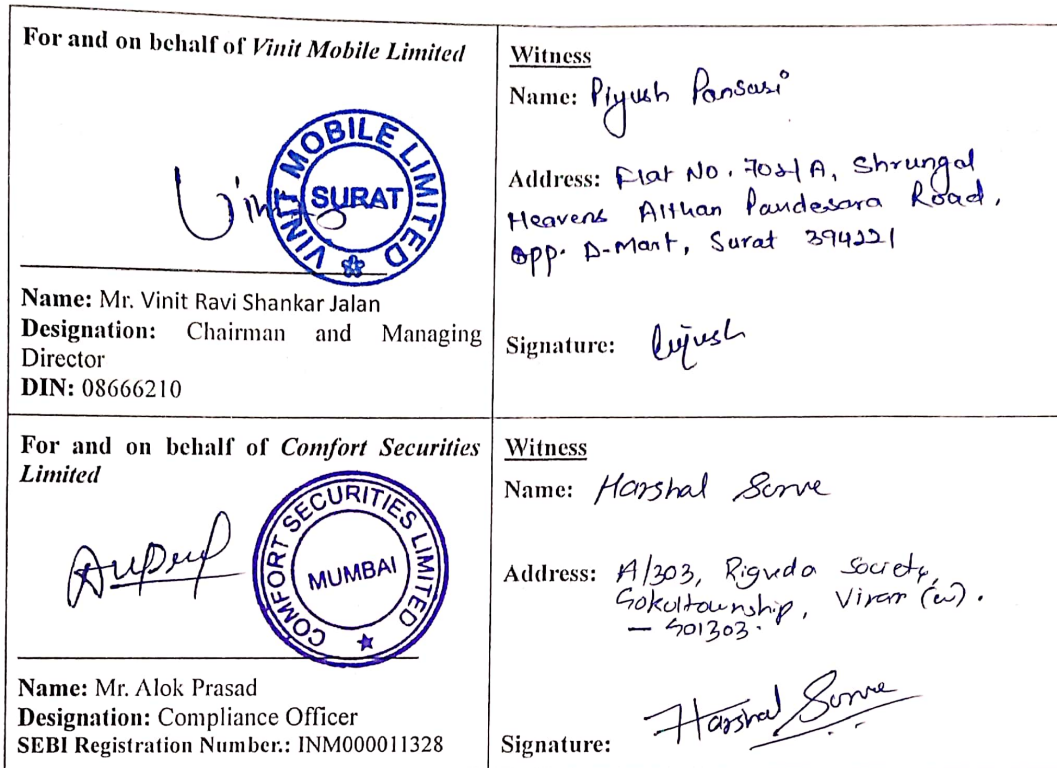 For and on behalf of Vinit Mobile Limited
VINIT MOBILE LIMITED
SURAT
Name: Mr. Vinit Ravi Shankar Jalan
Designation: Chairman and Managing
Director
DIN: 08666210
Witness
Name: Piyush Pansari
Address: Flat No. 702/A, Shrungal
Heavens Althan Pandesara Road,
opp. D-Mart, Surat 394221
Signature: Piyush
For and on behalf of Comfort Securities
Limited
COMFORT SECURITIES LIMITED
MUMBAI
Name: Mr. Alok Prasad
Designation: Compliance Officer
SEBI Registration Number.: INM000011328
Witness
Name: Harshal Surve
Address: A/303, Rigveda Society,
Gokultownship, Virar (w).
- 401303.
Signature: Harshal Surve